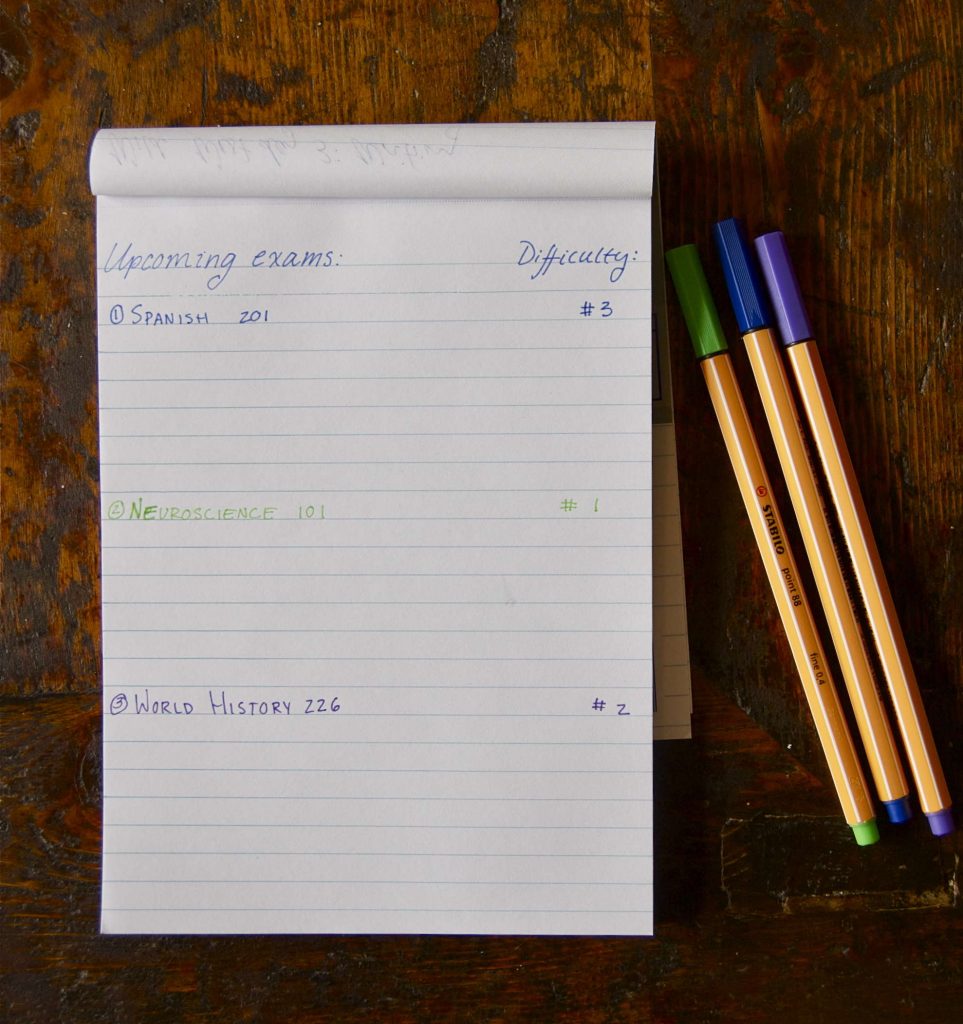 Upcoming exams: Difficulty:
① SPANISH 201 #3
② NEUROSCIENCE 101 # 1
③ WORLD HISTORY 226 # 2
STABILO point 88 fine 0,4